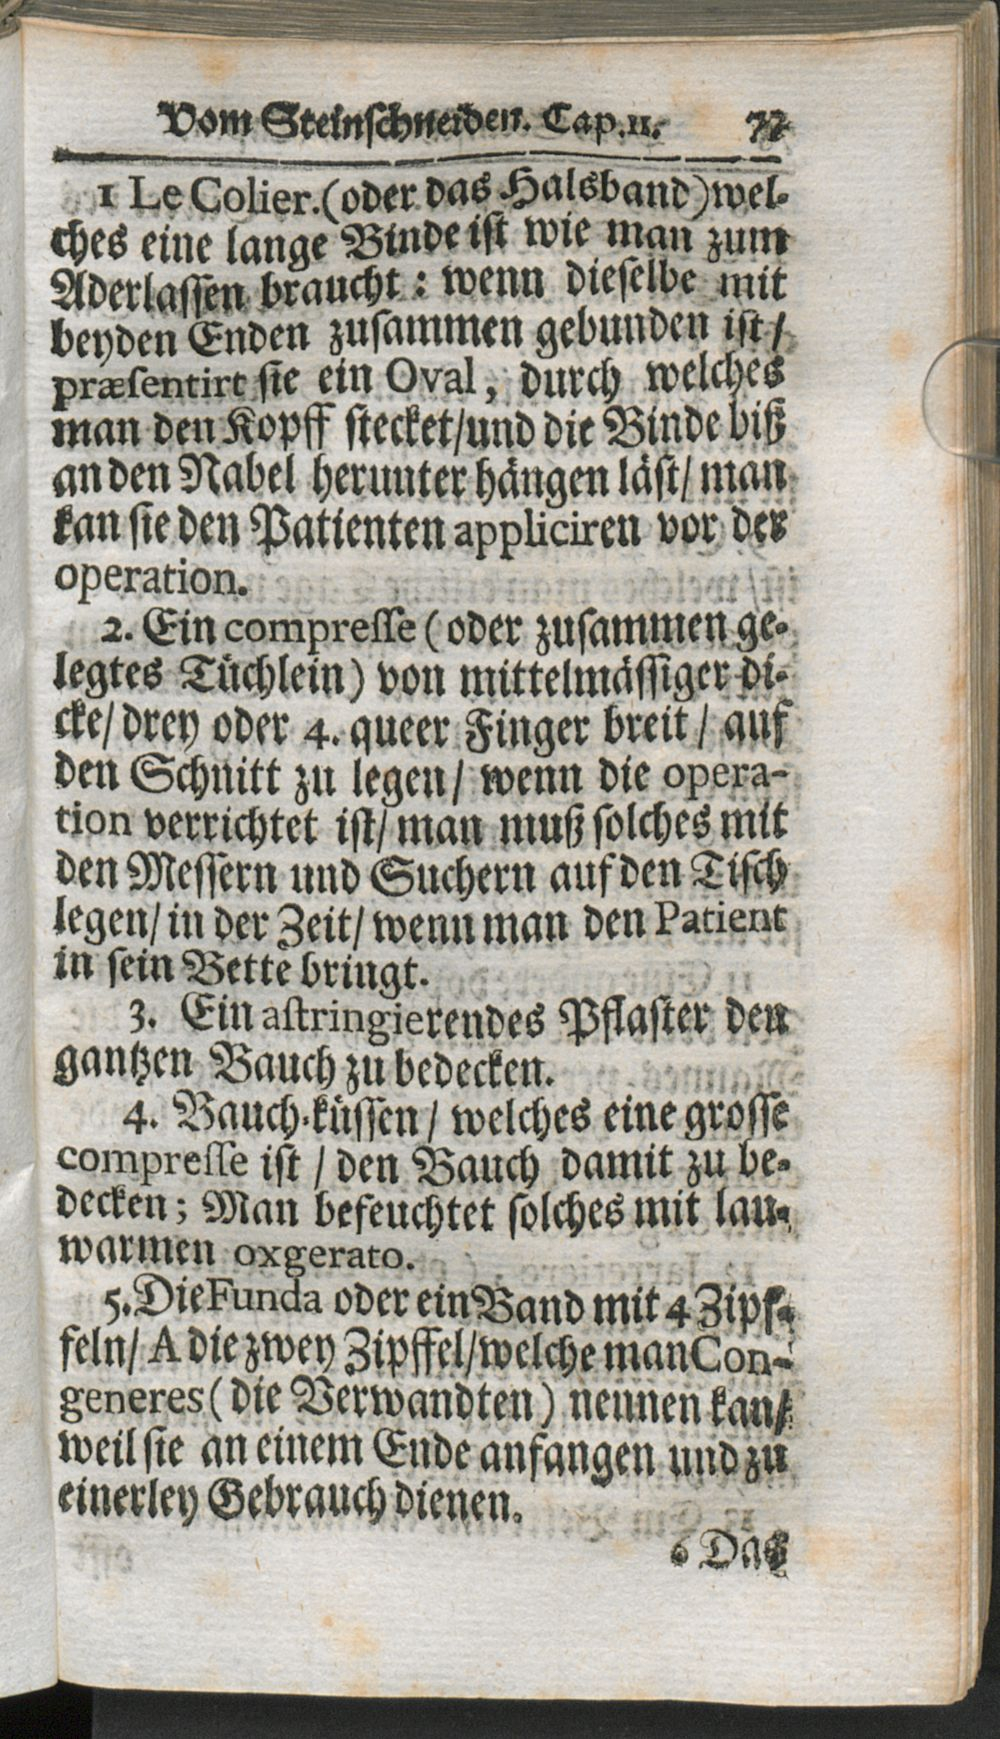 Vom Steinschneiden. Cap. II. 77
1 Le Colier. (oder das Halsband) wel-
ches eine lange Binde ist wie man zum
Aderlassen braucht: wenn dieselbe mit
beyden Enden zusammen gebunden ist/
præsentirt sie ein Oval, durch welches
man den Kopff stecket/und die Binde biß
an den Nabel herunter hängen läst/ man
kan sie den Patienten appliciren vor der
operation.
2. Ein compresse (oder zusammen ge-
legtes Tüchlein) von mittelmässiger di-
cke/ drey oder 4. queer Finger breit / auf
den Schnitt zu legen/ wenn die opera-
tion verrichtet ist/ man muß solches mit
den Messern und Suchern auf den Tisch
legen/ in der Zeit/ wenn man den Patient
in sein Bette bringt.
3. Ein astringierendes Pflaster den
gantzen Bauch zu bedecken.
4. Bauch-küssen / welches eine grosse
compresse ist / den Bauch damit zu be-
decken; Man befeuchtet solches mit lau-
warmen oxgerato.
5. Die Funda oder ein Band mit 4 Zipf-
feln/ A die zwey Zipffel/welche man Con-
generes (die Verwandten) nennen kan/
weil sie an einem Ende anfangen und zu
einerley Gebrauch dienen.
6 Das